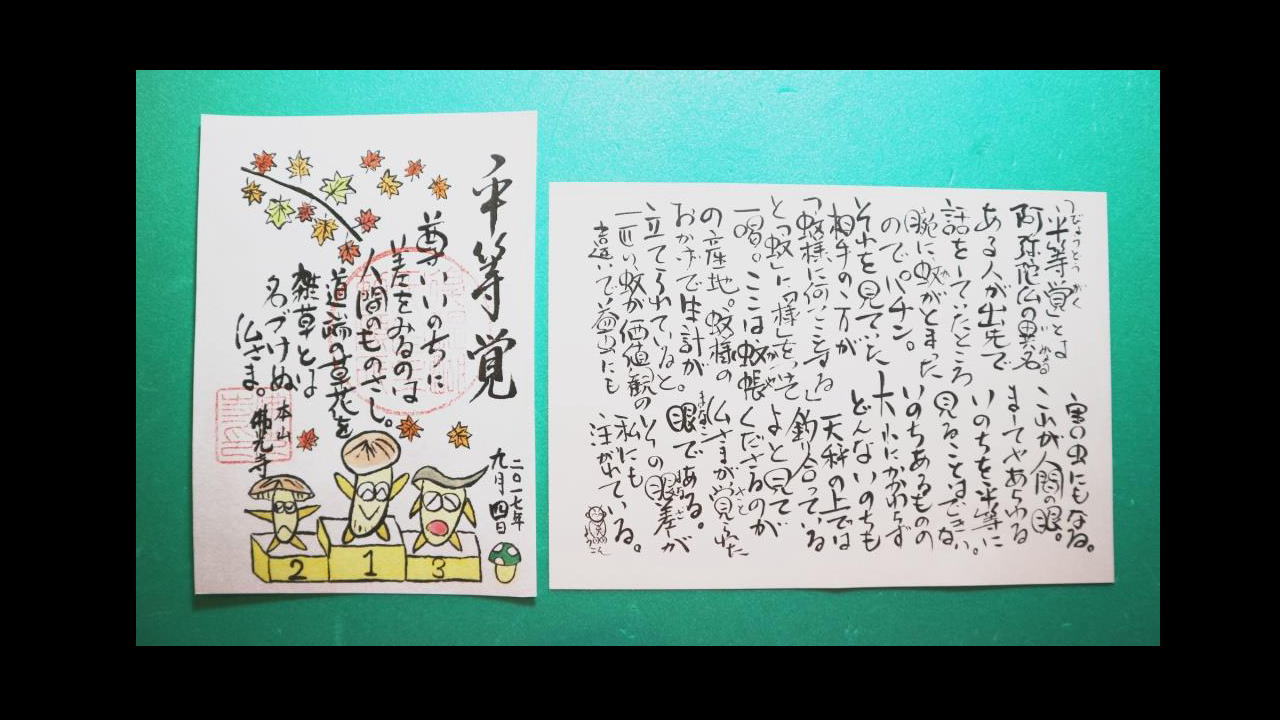 平等覚
尊いいのちに
差をみるのは
人間のものさし。
道端の草花を
雑草とは
名づけぬ
仏さま。
本山
佛光寺
二〇一七年
九月四日
2 1 3
びょうどうがく
「平等覚」とは
阿弥陀仏の異名。
ある人が出先で
話をしていたところ
腕に蚊がとまった
のでパチン。
それを見ていた
相手の方が
「蚊様に何てことする」
と「蚊」に「様」をつけて
一喝。ここは蚊帳
の産地。蚊様の
おかげで生計が
立てられていると。
一匹の蚊が価値観の
違いで益虫にも
害の虫にもなる。
これが人間の眼。
ましてやあらゆる
いのちを平等に
見ることはできない。
いのちあるものの
大小にかかわらず
どんないのちも
天秤の上では
釣り合っている
よと見て
くださるのが
仏さまが覚られた
眼である。
の眼差が
私にも
注がれている。